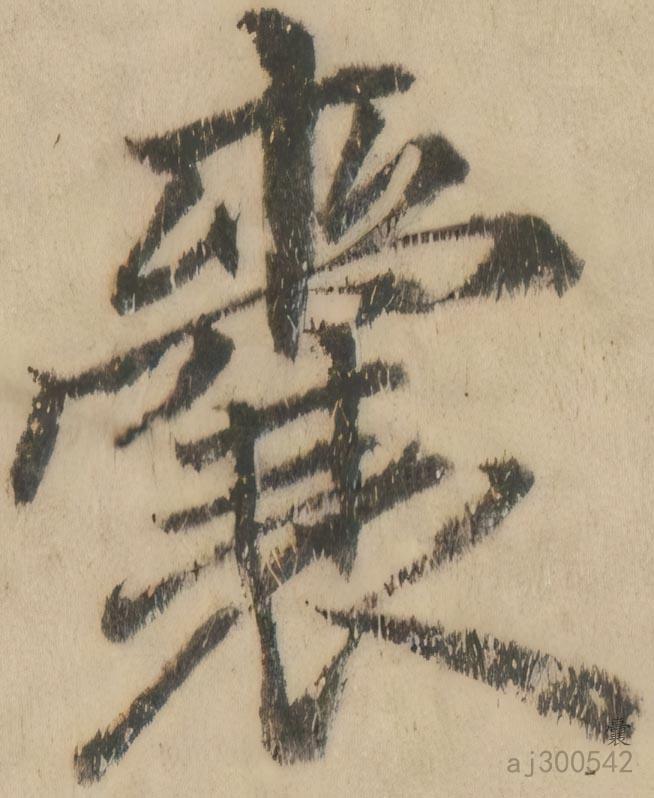 囊
囊
aj300542